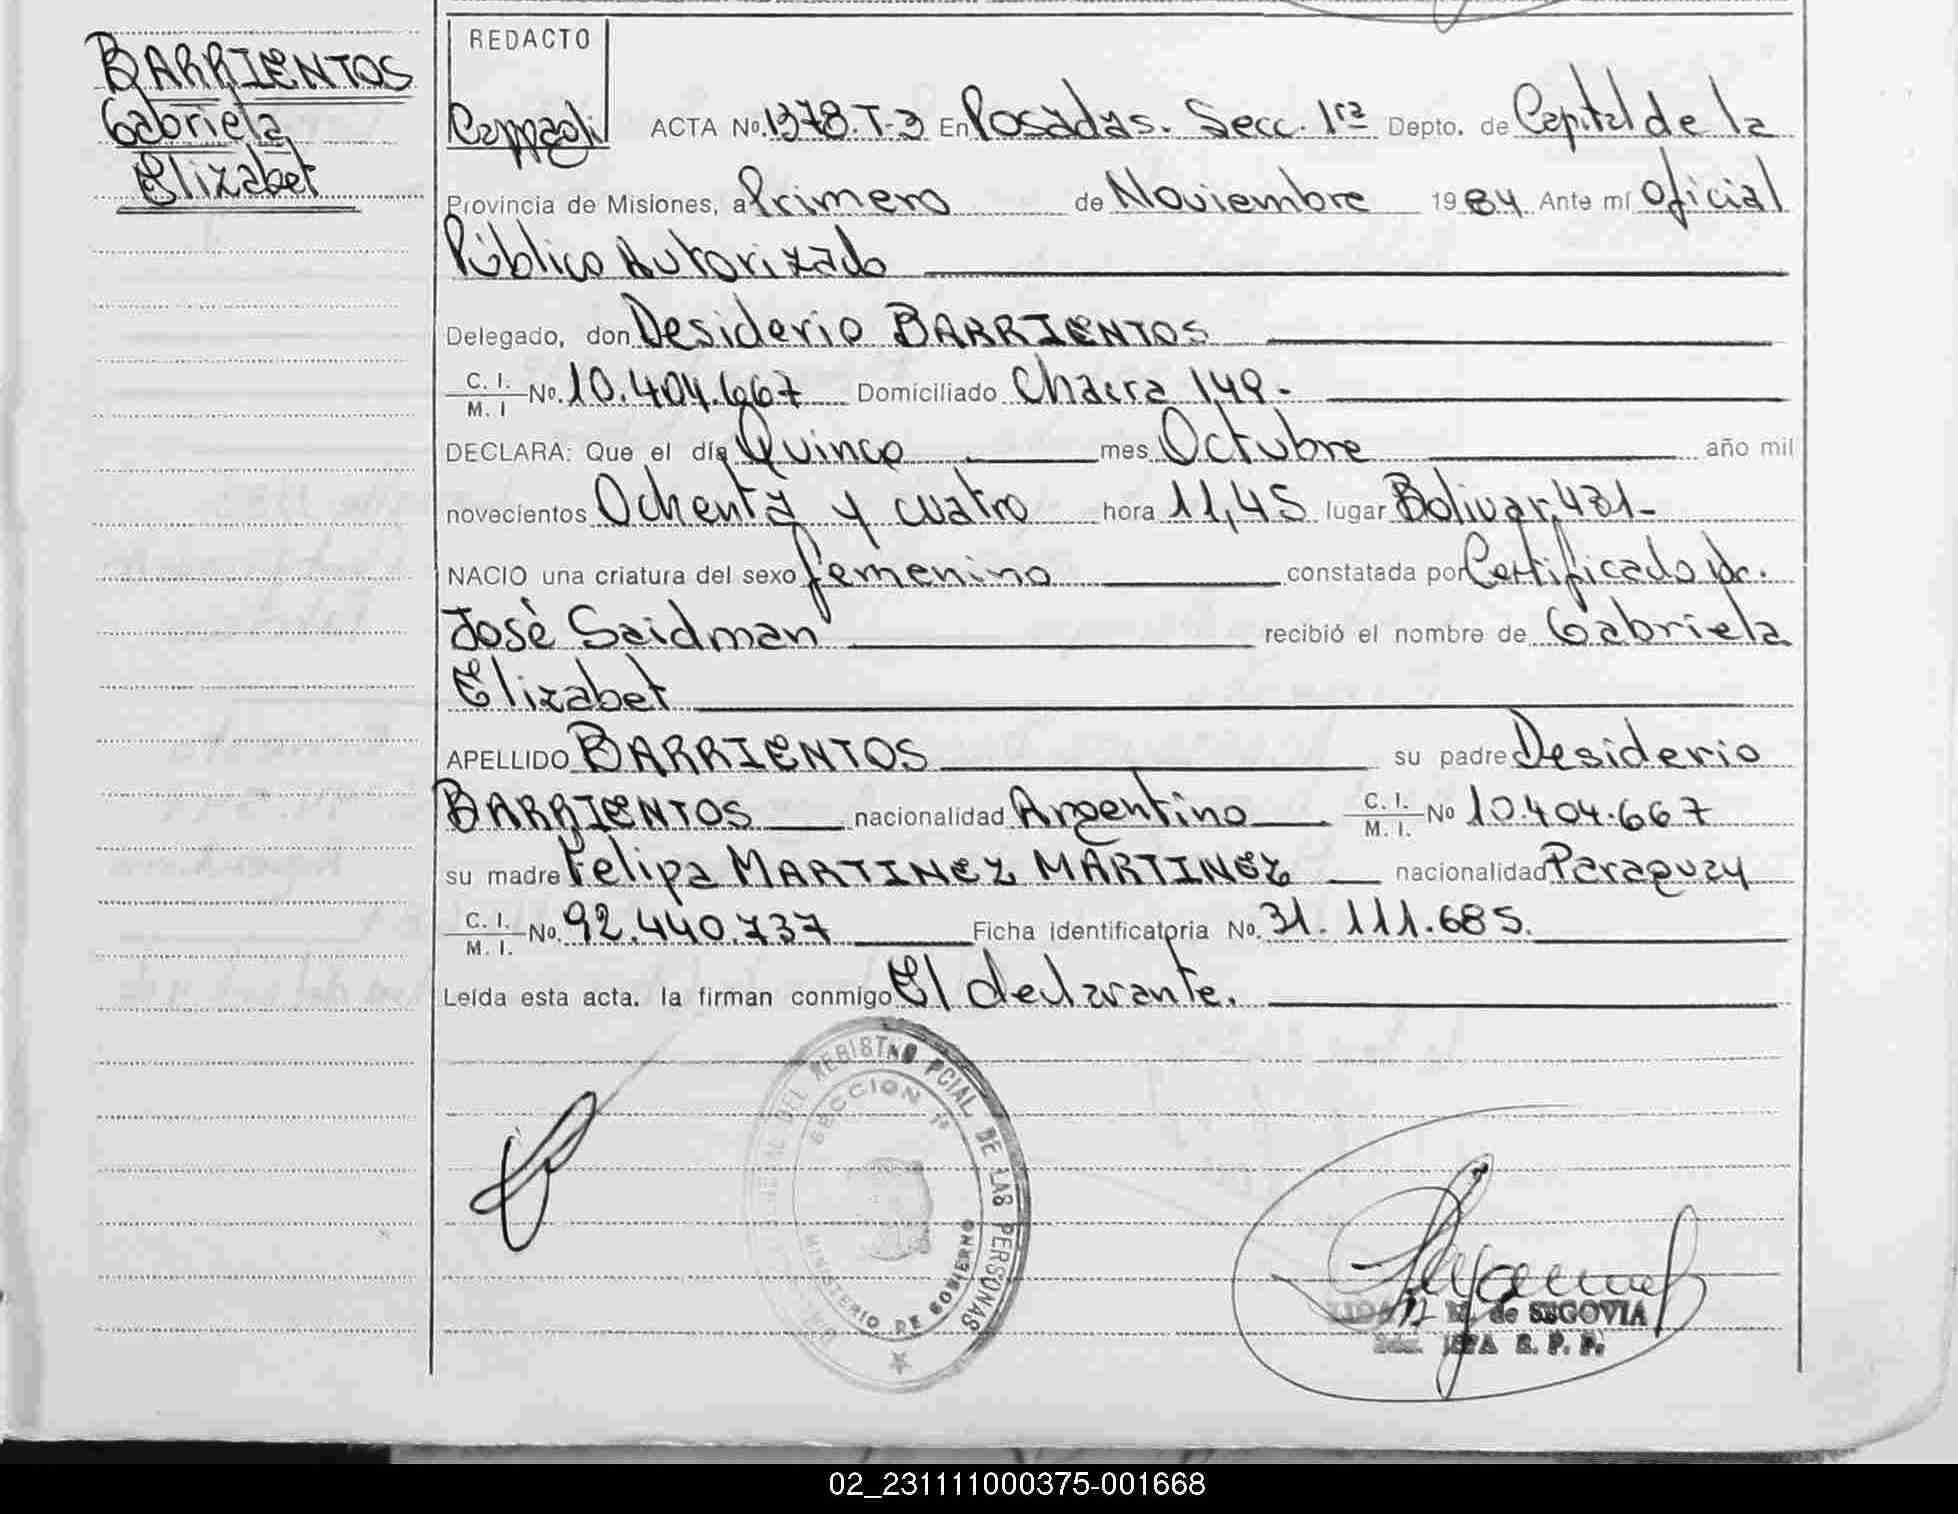 BARRIENTOS
Gabriela
Elizabet
REDACTO
ACTA No. 1378. T-3 En Posadas. Secc. 1ra Depto. de Capital de la
Provincia de Misiones, a Primero de Noviembre 1984 Ante mí Oficial
Público Autorizado
Delegado, don Desiderio BARRIENTOS
C. I. M. I No. 10.404.667 Domiciliado Chacra 149.-
DECLARA: Que el día Quince mes Octubre año mil
novecientos Ochenta y cuatro hora 11,45 lugar Bolivar, 431-
NACIO una criatura del sexo femenino constatada por Certificado Dr.
José Saidman recibió el nombre de Gabriela
Elizabet
APELLIDO BARRIENTOS su padre Desiderio
BARRIENTOS nacionalidad Argentino C. I. M. I. No 10.404.667
su madre Felipa MARTINEZ MARTINEZ nacionalidad Paraguay
C. I. M. I. No. 92.440.737 Ficha identificatoria No. 31.111.685.
Leída esta acta. la firman conmigo El declarante.
DEL REGISTRO PCIAL DE LAS PERSONAS
SECCION 1a
MINISTERIO DE GOBIERNO
de SEGOVIA
R. P. P.
02_231111000375-001668